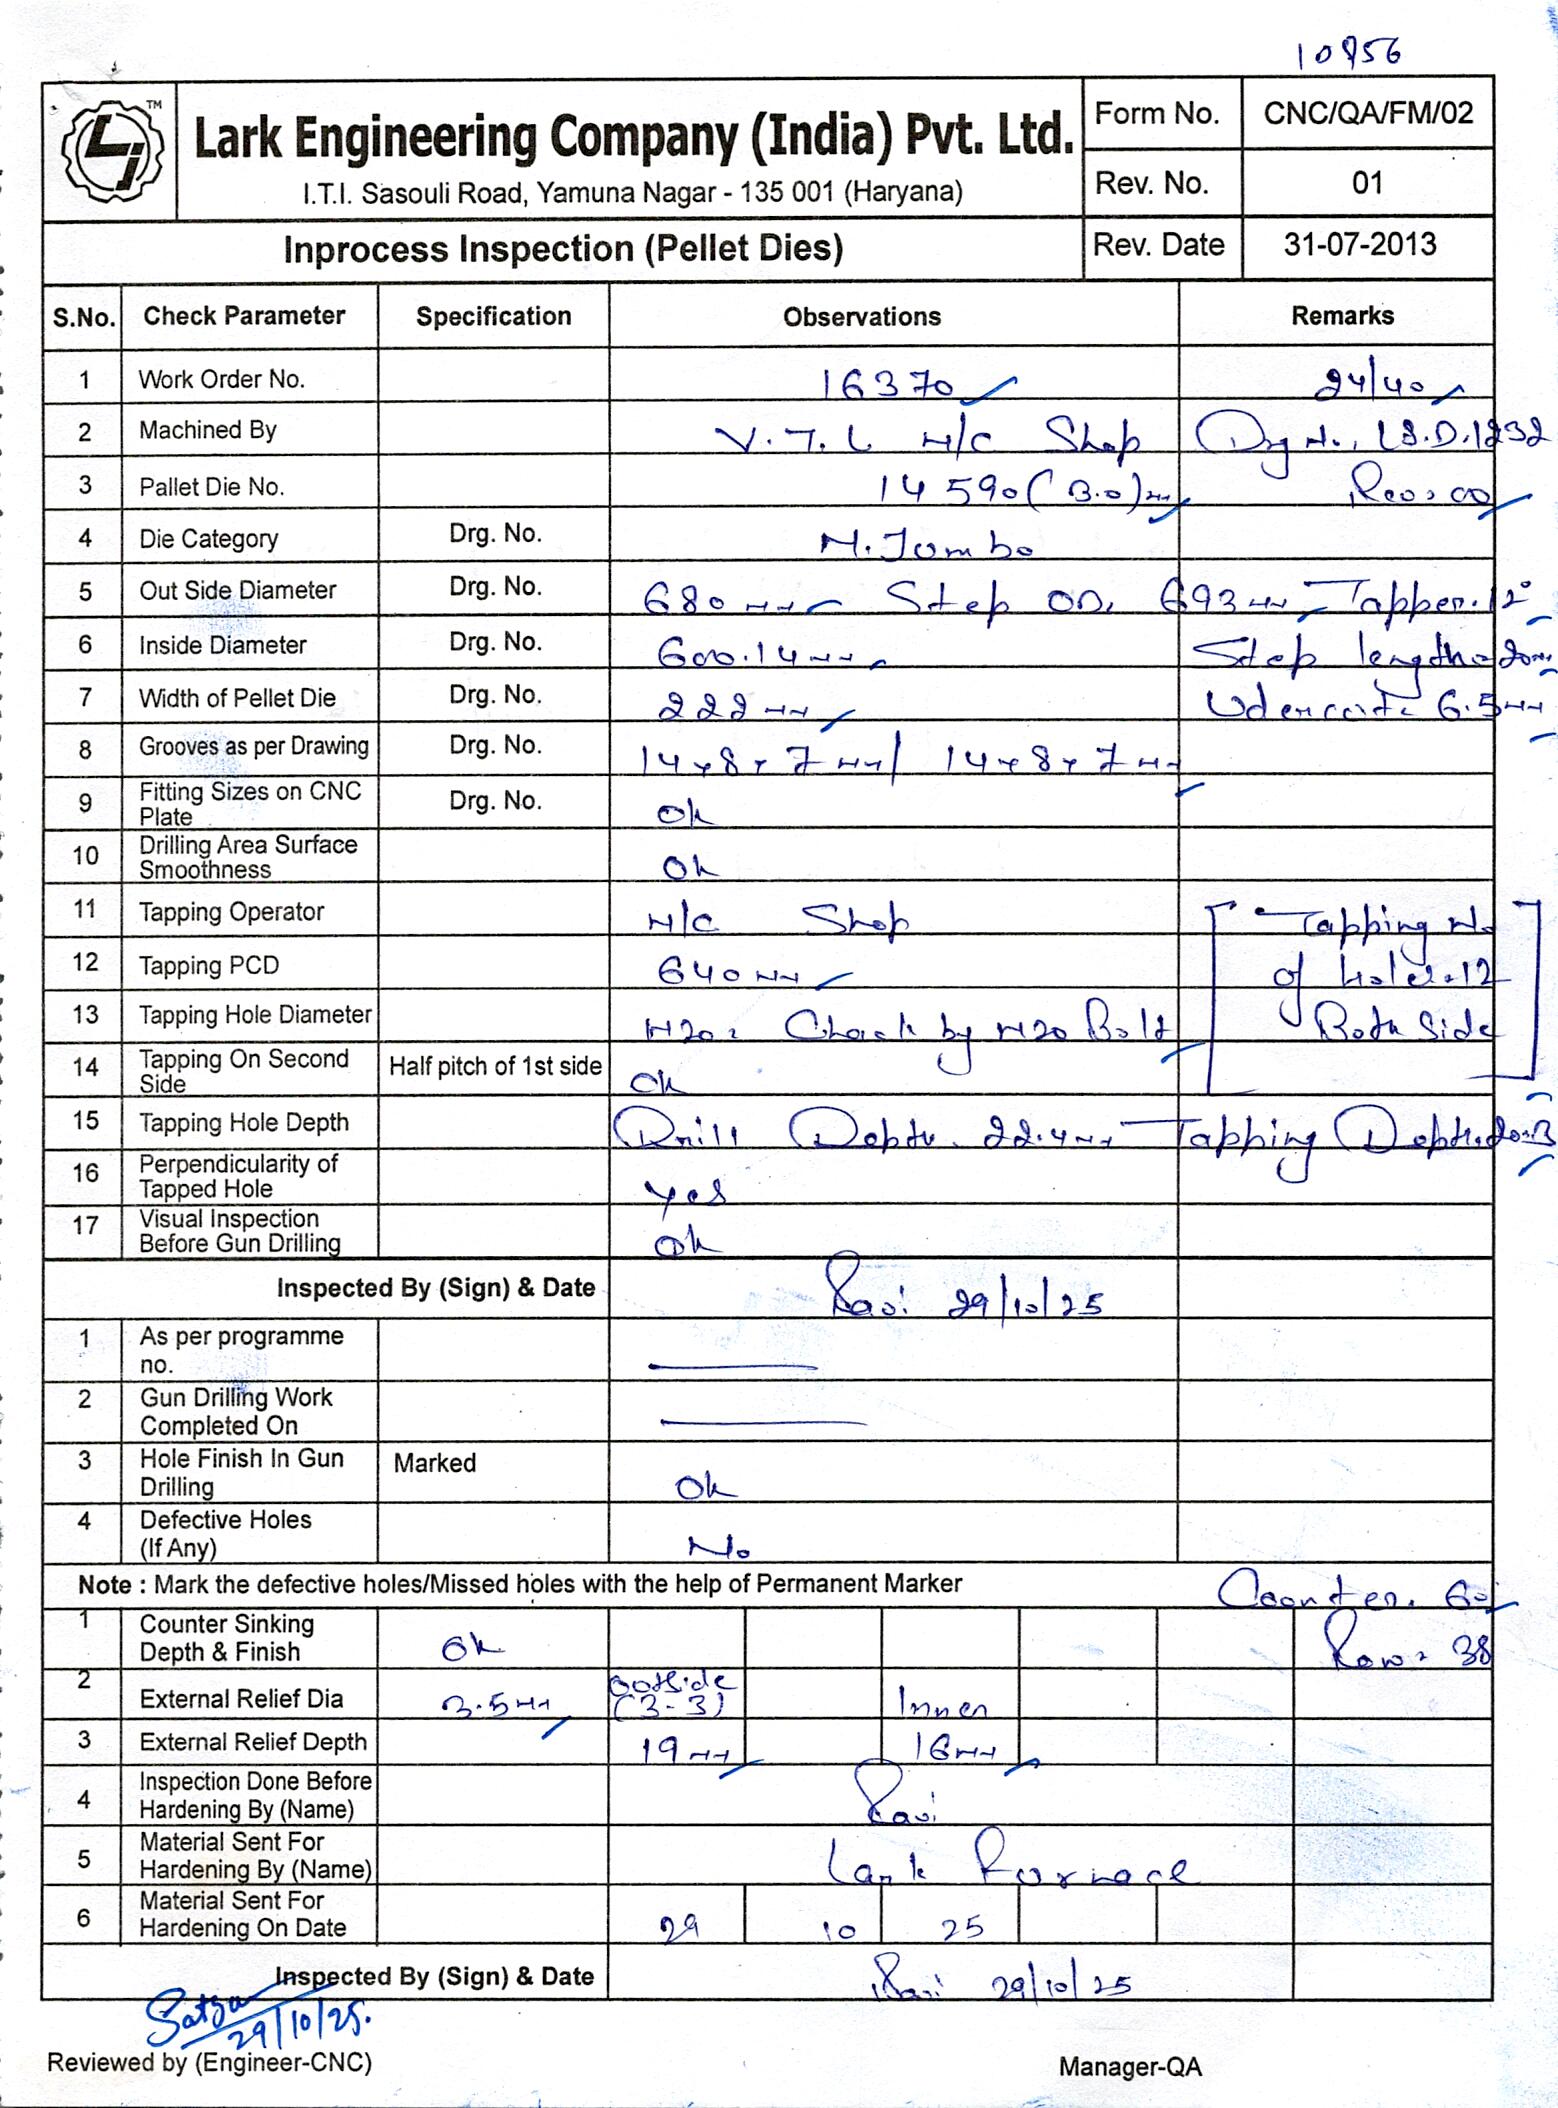 10856
LJ TM
Lark Engineering Company (India) Pvt. Ltd.
I.T.I. Sasouli Road, Yamuna Nagar - 135 001 (Haryana)
Form No. CNC/QA/FM/02
Rev. No. 01
Inprocess Inspection (Pellet Dies)
Rev. Date 31-07-2013
S.No. Check Parameter Specification Observations Remarks
1 Work Order No. 16370 24/40
2 Machined By V.T.L M/C Shop Drg N. LS.D.1232
3 Pallet Die No. 14590 (3.0)mm Rev: 00
4 Die Category Drg. No. M. Jumbo
5 Out Side Diameter Drg. No. 680mm Step OD. 693mm Tapper. 12°
6 Inside Diameter Drg. No. 600.14mm Step length 20mm
7 Width of Pellet Die Drg. No. 222mm Udercut. 6.5mm
8 Grooves as per Drawing Drg. No. 14x8x7mm/ 14x8x7mm
9 Fitting Sizes on CNC
Plate Drg. No. Ok
10 Drilling Area Surface
Smoothness Ok
11 Tapping Operator M/C Shop Tapping N.
12 Tapping PCD 640mm of holes.12
13 Tapping Hole Diameter M20: Check by M20 Bolt Both Side
14 Tapping On Second
Side Half pitch of 1st side Ok
15 Tapping Hole Depth Drill Depth. 22.4mm Tapping Depth.
16 Perpendicularity of
Tapped Hole yes
17 Visual Inspection
Before Gun Drilling Ok
Inspected By (Sign) & Date Ravi 29/10/25
1 As per programme
no.
2 Gun Drilling Work
Completed On
3 Hole Finish In Gun
Drilling Marked Ok
4 Defective Holes
(If Any) No
Note : Mark the defective holes/Missed holes with the help of Permanent Marker Counter. 60°
1 Counter Sinking
Depth & Finish Ok Row: 38
2 External Relief Dia 3.5mm Outside
(3-3) Inner
3 External Relief Depth 19mm 16mm
4 Inspection Done Before
Hardening By (Name) Ravi
5 Material Sent For
Hardening By (Name) Lark Furnace
6 Material Sent For
Hardening On Date 29 10 25
Inspected By (Sign) & Date Ravi 29/10/25
29/10/25.
Reviewed by (Engineer-CNC) Manager-QA